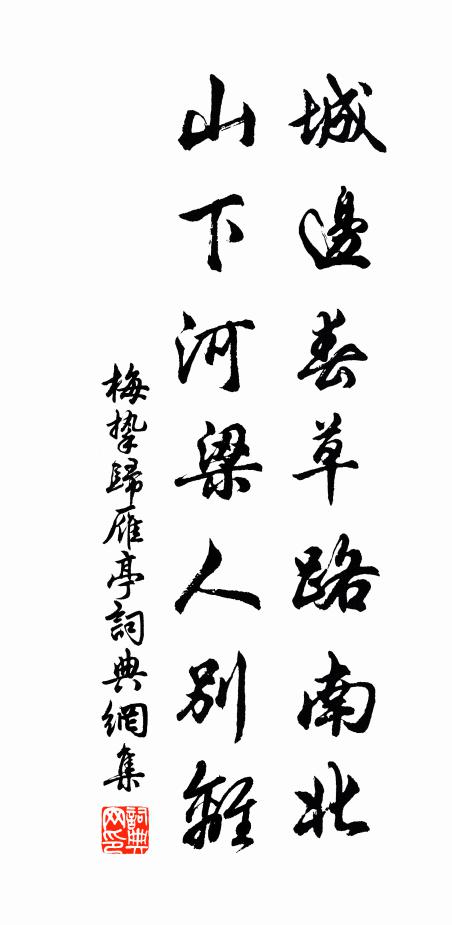 城邊春草路南北
山下河梁人別離
梅摯歸雁亭詞典網集
詞典網印